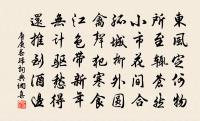 東風定何物
所至輒蒼然
小市花間合
孤城柳外圓
禽聲犯寒食
江色帶新年
無計驅愁得
還推到酒邊